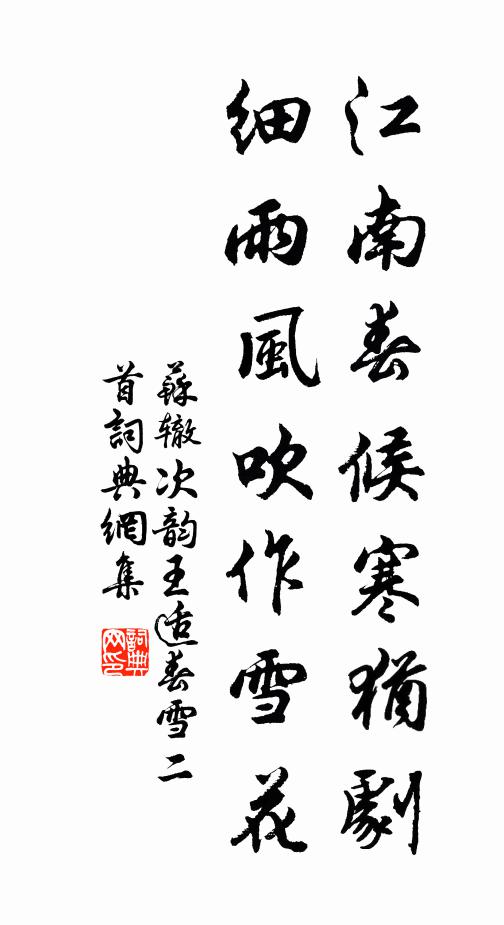 江南春候寒猶劇
細雨風吹作雪花
蘇辙次韵王适春雪二
首詞典網集
詞典
网印